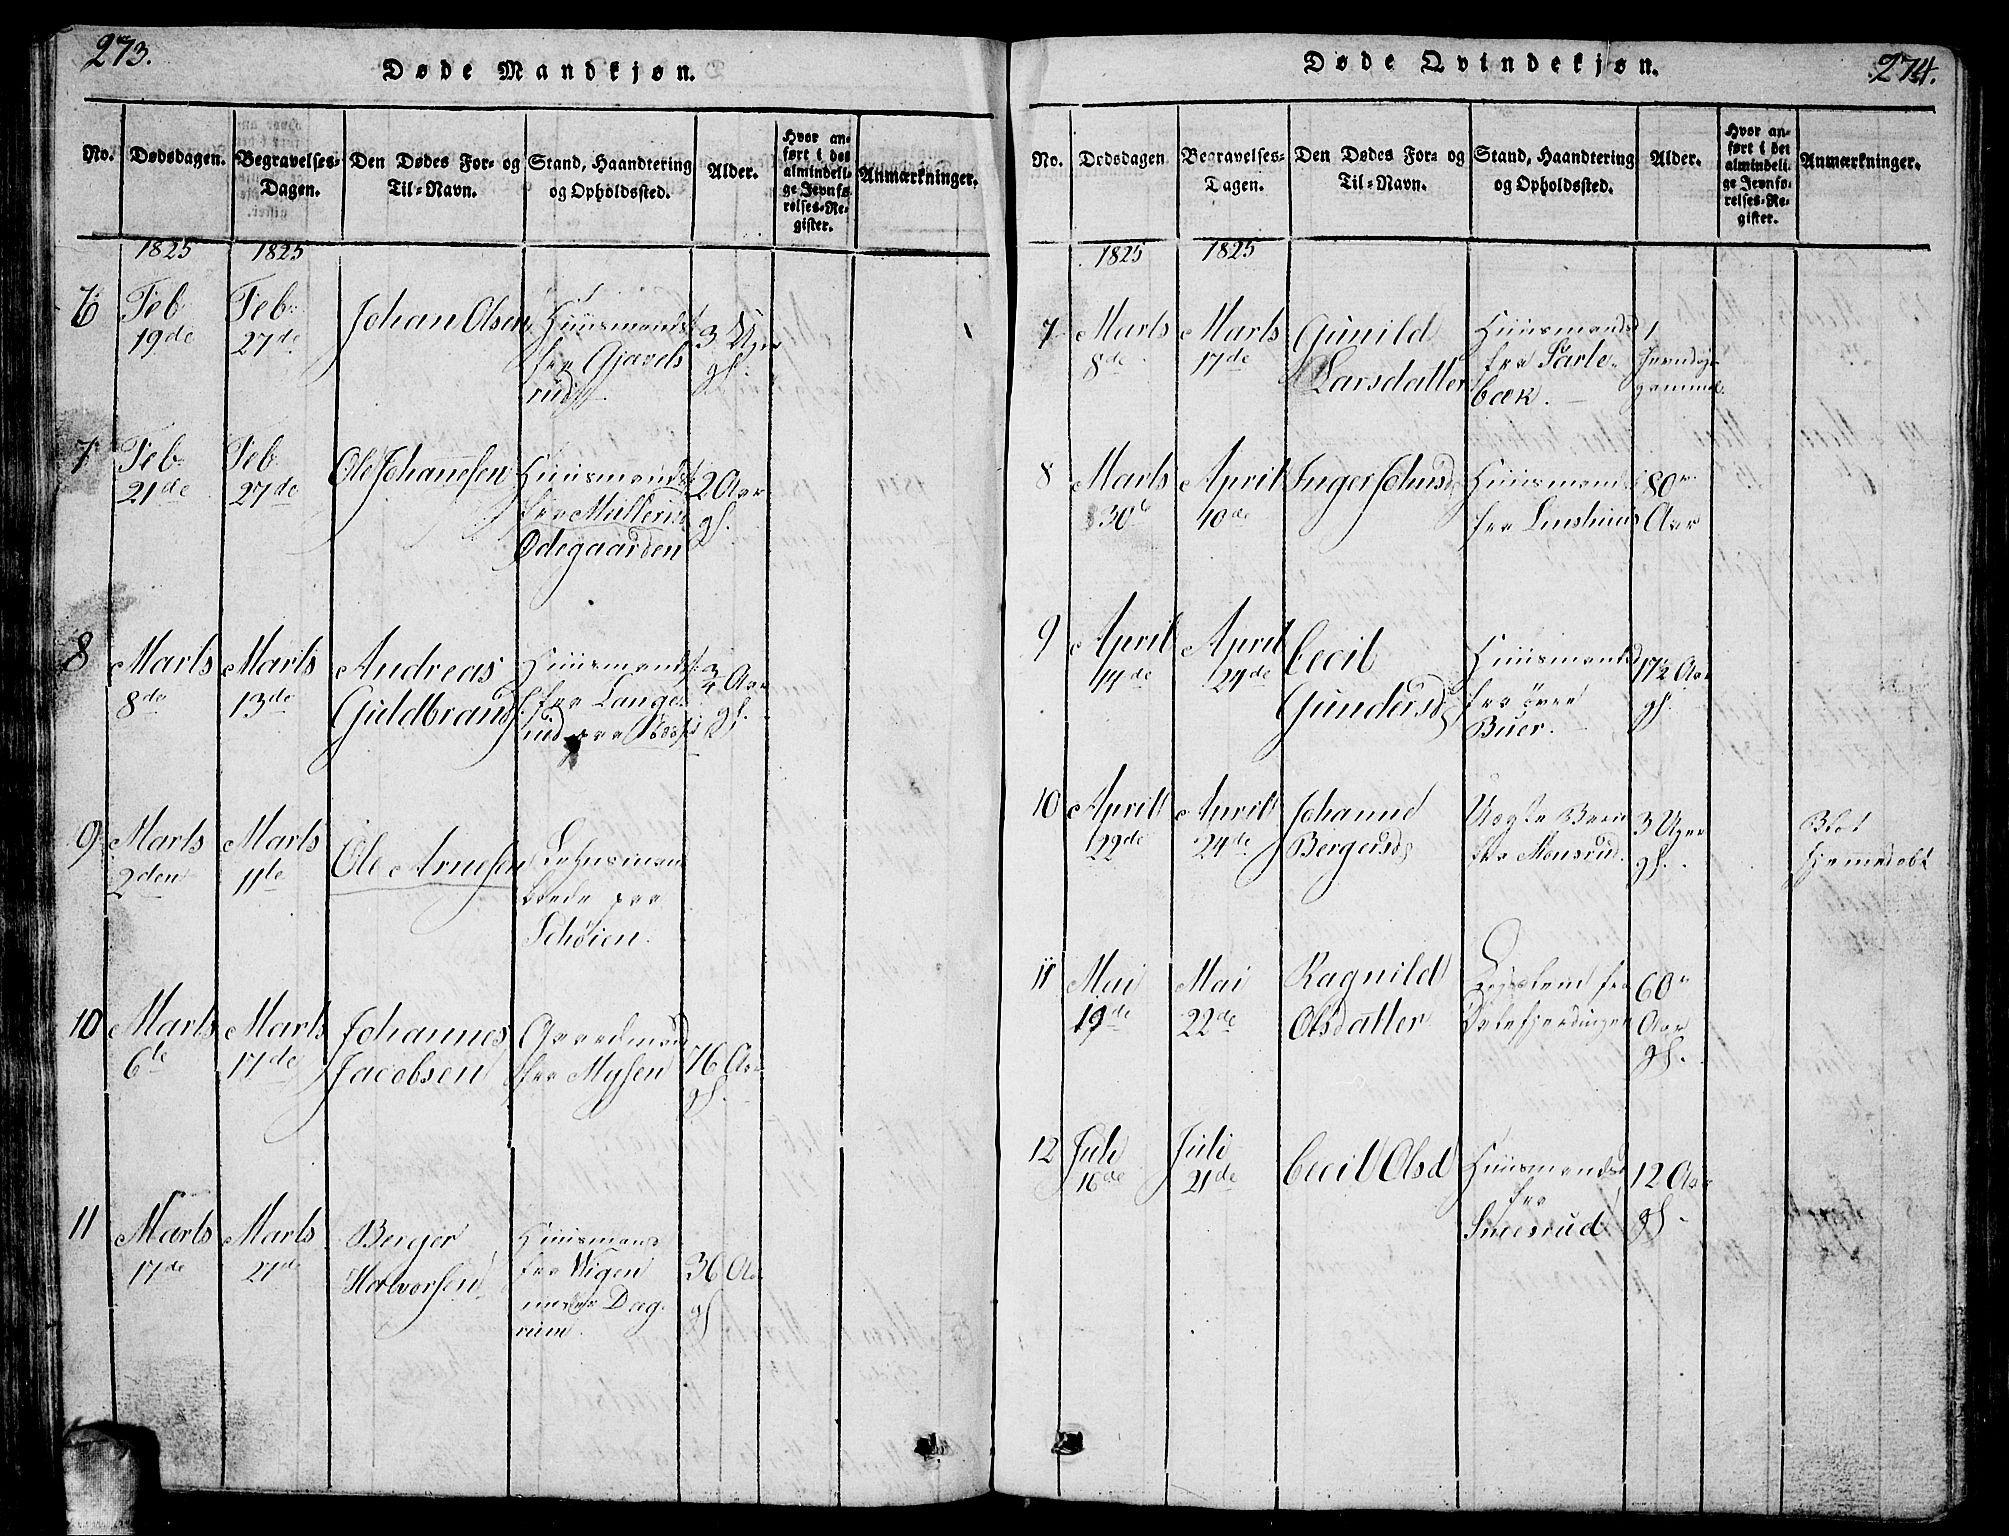 273.
Døde Mandkjøn.
No.
Dødsdagen.
Begravelses-
Dagen.
Den Dødes For- og
Til-Navn.
Stand, Haandtering
og Opholdssted.
Alder.
Hvor an-
ført i det
almindeli-
ge Jevnfø-
relses-Re-
gister.
Anmærkninger.
1825 1825
6 Feb Feb Johan Olsen Huusmands
19de 27de fra Gjavels 3 Uger
rud gl.
7 Feb Feb Ole Johannesen Huusmands 2 Aar
21de 27de fra gl.
Ødegaarden
8 Marts Marts Andreas Huusmands 3/4 Aar
8de 13de Guldbrands fra Lange gl.
rud
9 Marts Marts Ole Arnesen
2den 11te
Schøien.
10 Marts Marts Johannes Gaardmand
6te 17de Jacobsen fra Mysen 76 Aar
gl.
11 Marts Marts Berger Huusmand
17de 27de Halvorsen fra Wigen 36 Aar
Dag- gl
rum.
274.
Døde Qvindekjøn.
No.
Dødsdagen
Begravelses-
Dagen.
Den Dødes For- og
Til-Navn.
Stand, Haandtering
og Opholdssted.
Alder.
Hvor an-
ført i det
almindeli-
ge Jevnfø-
relses-Re-
gister.
Anmærkninger.
1825 1825
7 Marts Marts Gunild Huusmandsd 1
8de 17de Larsdatter fra Sarle-
bæk. gammel
8 Marts April Inger Johnsd Huusmand 80
30 10de fra Aar
9 April April Cecil Huusmandsd 17½ Aar
14de 24de Gundersd fra øvre gl.
Buer.
10 April April Johanne Uægte Barn 3 Uger Blot
22de 24de Bergersd fra Monsrud. gl. hjemmedøbt
11 Mai Mai Ragnild Lægslem fra 60
19de 22de Olsdatter Aar
gl.
12 Juli Juli Cecil Olsd Huusmandsd 12 Aar
16de 21de fra gl.